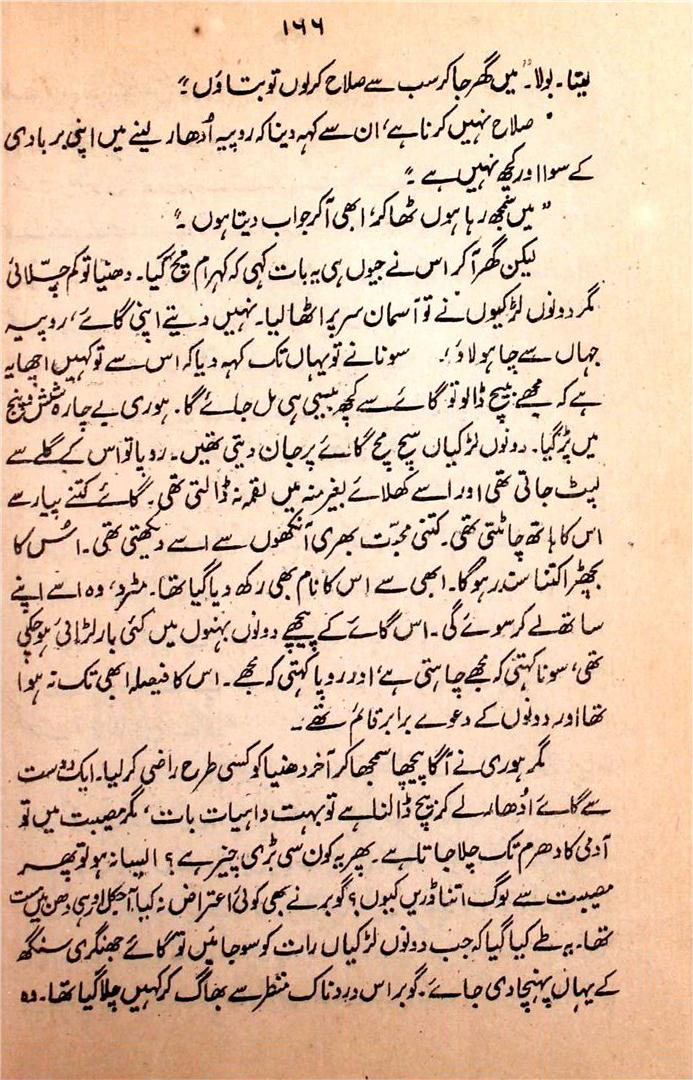 ۱۶۶
لیتا۔ بولا۔ "میں گھر جا کر سب سے صلاح کر لوں تو بتاؤں۔"
"صلاح نہیں کرنا ہے، ان سے کہہ دینا کہ روپیہ اُدھار لینے میں اپنی بربادی
کے سوا اور کچھ نہیں ہے۔"
"میں سمجھ رہا ہوں ٹھاکر، ابھی آکر جواب دیتا ہوں۔"
لیکن گھر آکر اس نے جیوں ہی یہ بات کہی کہ کہرام مچ گیا۔ دھنیا تو کم چلّائی
مگر دونوں لڑکیوں نے تو آسمان سر پر اٹھا لیا۔ نہیں دیتے اپنی گائے، روپیہ
جہاں سے چاہو لاؤ۔ سونا نے تو یہاں تک کہہ دیا کہ اس سے تو کہیں اچھا یہ
ہے کہ مجھے بیچ ڈالو تو گائے سے کچھ بیسی ہی مل جائے گا۔ ہوری بے چارہ شش و پنج
میں پڑ گیا۔ دونوں لڑکیاں سچ مچ گائے پر جان دیتی تھیں۔ روپا تو اس کے گلے سے
لپٹ جاتی تھی اور اسے کھلائے بغیر منہ میں لقمہ نہ ڈالتی تھی۔ گائے کتنے پیار سے
اس کا ہاتھ چاٹتی تھی۔ کتنی محبّت بھری آنکھوں سے اسے دیکھتی تھی۔ اُس کا
بچھڑا کتنا سندر ہوگا۔ ابھی سے اس کا نام بھی رکھ دیا گیا تھا۔ مٹرو، وہ اسے اپنے
ساتھ لے کر سوئے گی۔ اس گائے کے پیچھے دونوں بہنوں میں کئی بار لڑائی ہو چکی
تھی، سونا کہتی کہ مجھے چاہتی ہے، اور روپا کہتی کہ مجھے۔ اس کا فیصلہ ابھی تک نہ ہوا
تھا اور دونوں کے دعوے برابر قائم تھے۔
مگر ہوری نے آگا پیچھا سمجھا کر آخر دھنیا کو کسی طرح راضی کر لیا۔ ایک دوست
سے گائے اُدھار لے کر بیچ ڈالنا ہے تو بہت واہیات بات، مگر مصیبت میں تو
آدمی کا دھرم تک چلا جاتا ہے۔ پھر یہ کون سی بڑی چیز ہے؟ ایسا نہ ہو تو پھر
مصیبت سے لوگ اتنا ڈریں کیوں؟ گوبر نے بھی کوئی اعتراض نہ کیا۔ آجکل اور ہی دھن میں مست
تھا۔ یہ طے کیا گیا کہ جب دونوں لڑکیاں رات کو سو جائیں تو گائے جھنگری سنگھ
کے یہاں پہنچا دی جائے۔ گوبر اس دردناک منظر سے بھاگ کر کہیں چلا گیا تھا۔ وہ